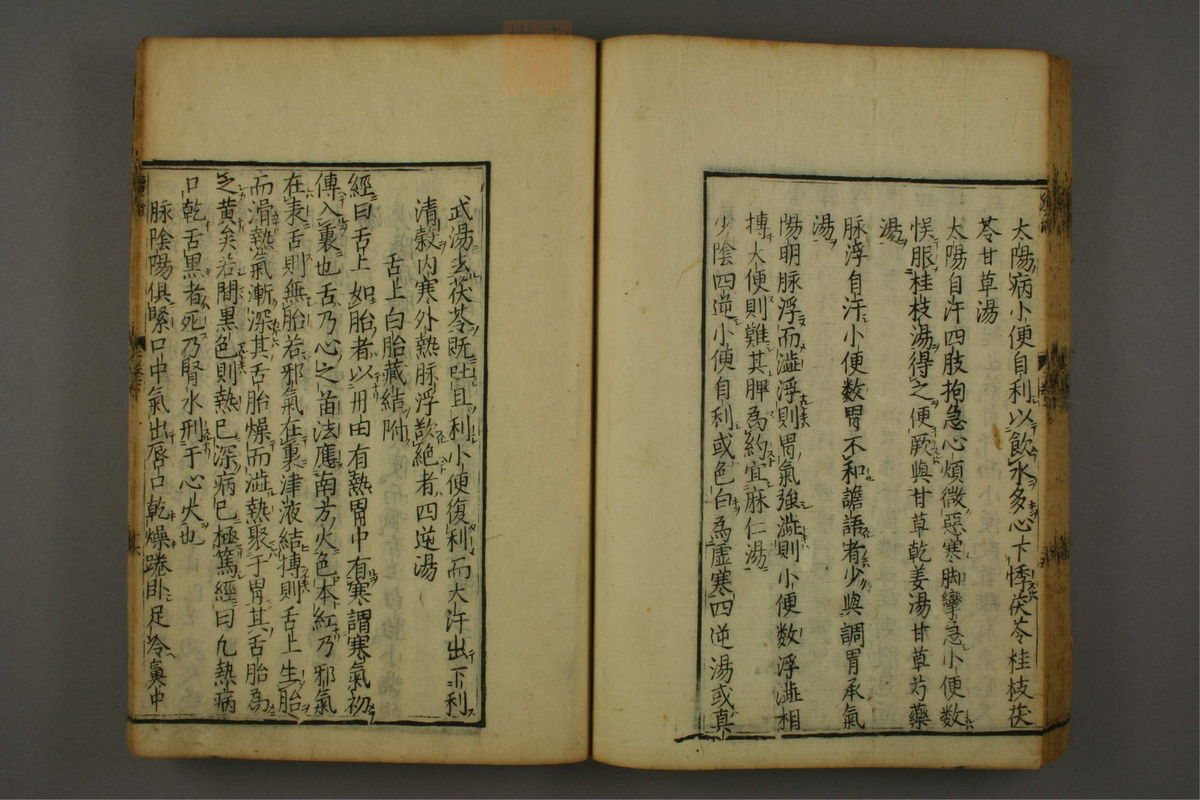 太陽病小便自利以飲水多心下悸茯苓桂枝茯
苓甘草湯
太陽自汗四肢拘急心煩微惡寒脚攣急小便數
悞服桂枝湯得之便厥與甘草乾姜湯甘草芍藥
湯
脉浮自汗小便數胃不和譫語者少與調胃承氣
湯
陽明脉浮而澁浮則胃氣強澁則小便數浮澁相
搏大便則難其脾為約宜麻仁湯
少陰四逆小便自利或色白為虛寒四逆湯或真
武湯去茯苓既吐且利小便復利而大汗出下利
清穀内寒外熱脉浮欲絕者四逆湯
舌上白胎藏結附
經曰舌上如胎者以丹田有熱胃中有寒謂寒氣初
傳入裏也舌乃心之苗法應南方火色本紅乃邪氣
在表舌則無胎若邪氣在裏津液結搏則舌上生胎
而滑熱氣漸深其舌胎燥而澁熱聚于胃其舌胎為
之黃矣若間黑色則熱已深病已極篤經曰凢熱病
口乾舌黑者死乃腎水刑于心火也
脉陰陽俱緊口中氣出唇口乾燥踡卧足冷鼻中